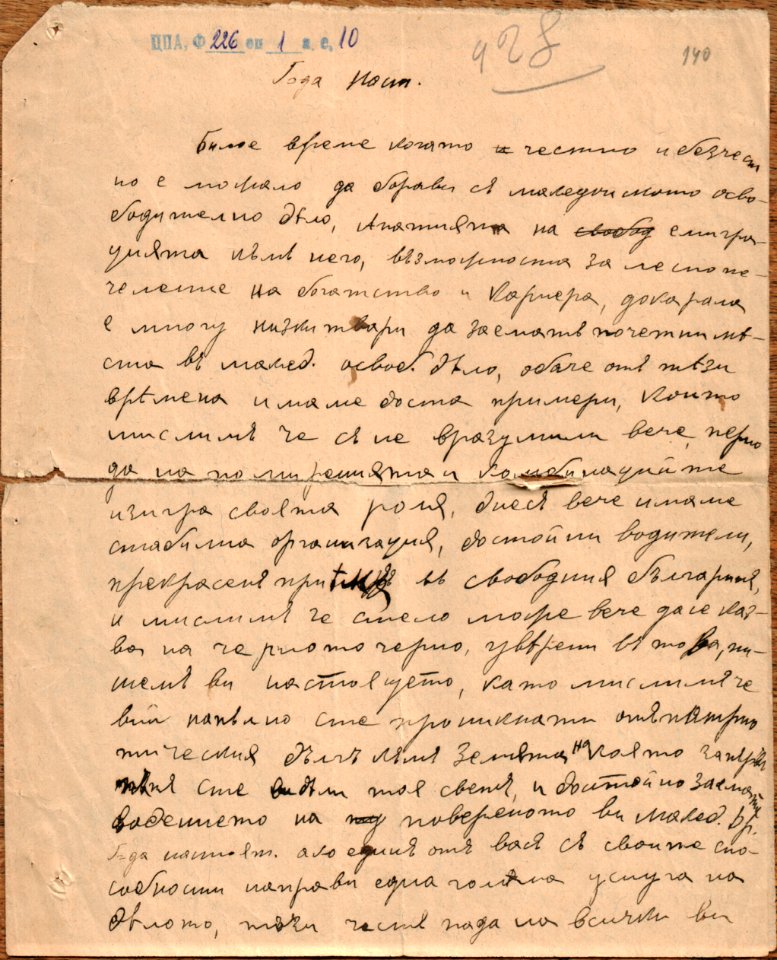 ЦПА, Ф 226 оп 1 а. е. 10
428
140
Г-да Наст.
Било е време когато и честно и безчест
но е можало да борави съ македонското осво-
бодително дѣло, Апатията на свобод емигра-
цията къмъ него, възможността за лесно пе-
челение на богатство и кариера, докарала
е много низки твари да заематъ почетни мѣ-
ста въ макед. освоб. дѣло, обаче отъ тѣзи
врѣмена имаме доста примери, които
мислимъ че съ не вразумили вече, перио
да на помиренията и комбинациите
изигра своята роля, днесъ вече имаме
стабилна организация, достойни водители,
прекрасенъ въ свободния българия,
и мислимъ че смело може вече да се каз-
ва на черното черно, уверени въ това, пи-
шемъ ви настоящето, като мислимъ че
вий напълно сте проникнати отъ патрио
тическия дългъ къмъ земята на която за първи
пѫтъ сте видѣли тоя светъ, и достойно заема
на повереното ви макед. бр.
Г-да настоят. ако единъ отъ васъ съ своите спо-
собности направи една голѣма услуга на
дѣлото, тази честь пада на всички ви